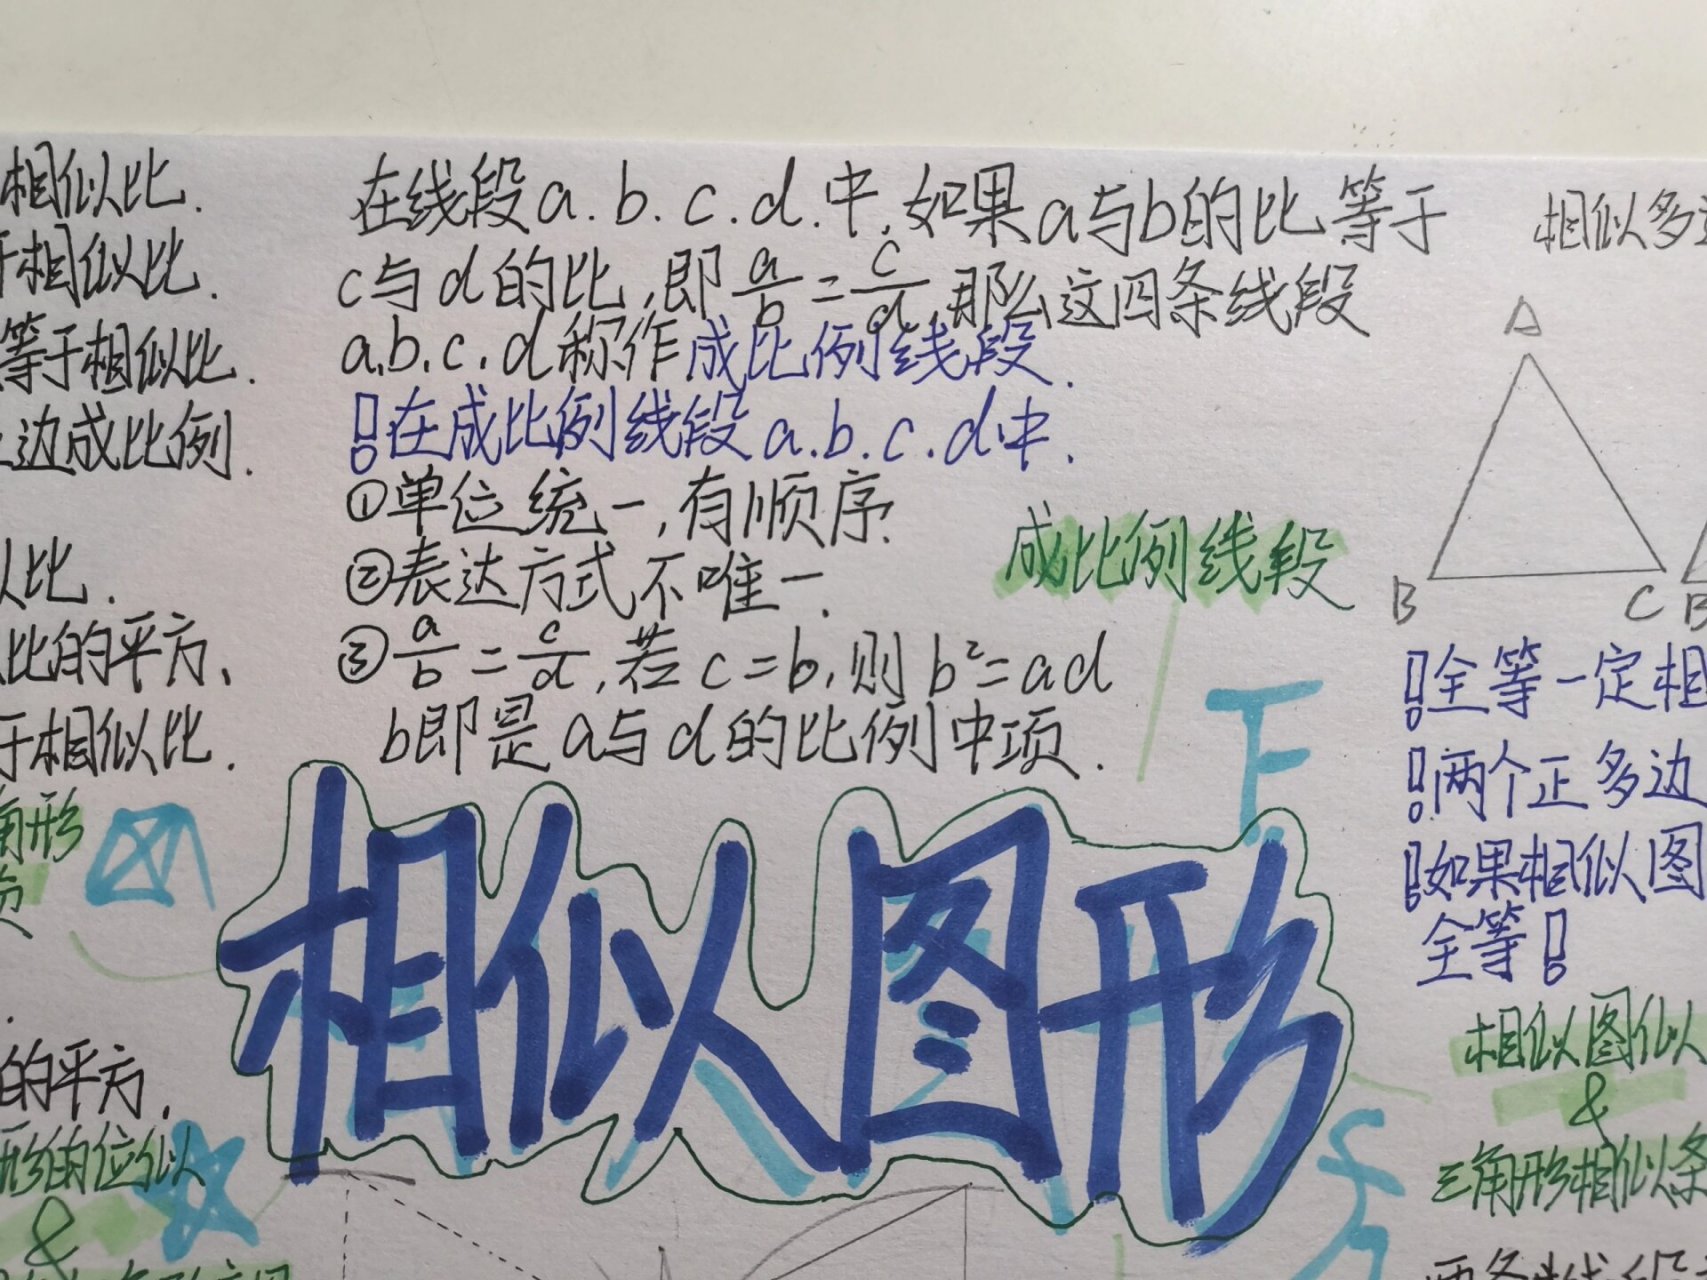 相似比.
相似比.
等于相似比.
边成比例.
比.
比的平方、
于相似比.
角形
的平方.
形的位似
&
在线段a.b.c.d.中.如果a与b的比等于
c与d的比,即a/b=c/d,那么这四条线段
a.b.c.d称作成比例线段.
!在成比例线段a.b.c.d中.
①单位统一,有顺序.
②表达方式不唯一.
③a/b=c/d,若c=b,则b²=ad
b即是a与d的比例中项.
成比例线段
相似图形
相似多
A
B
C
B
!全等一定相
!两个正多边
!如果相似图
全等!
相似图似
&
三角形相似条
两条线段